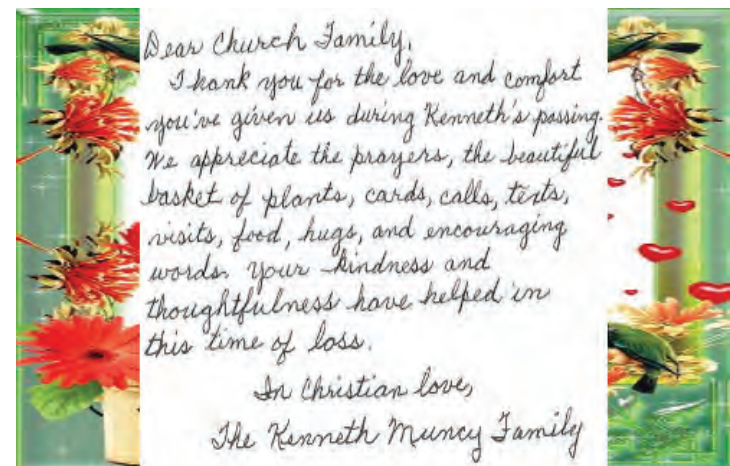 Dear Church Family,
Thank you for the love and comfort
you've given us during Kenneth's passing.
We appreciate the prayers, the beautiful
basket of plants, cards, calls, texts,
visits, food, hugs, and encouraging
words. Your kindness and
thoughtfulness have helped in
this time of loss.
In Christian love,
The Kenneth Muncy Family